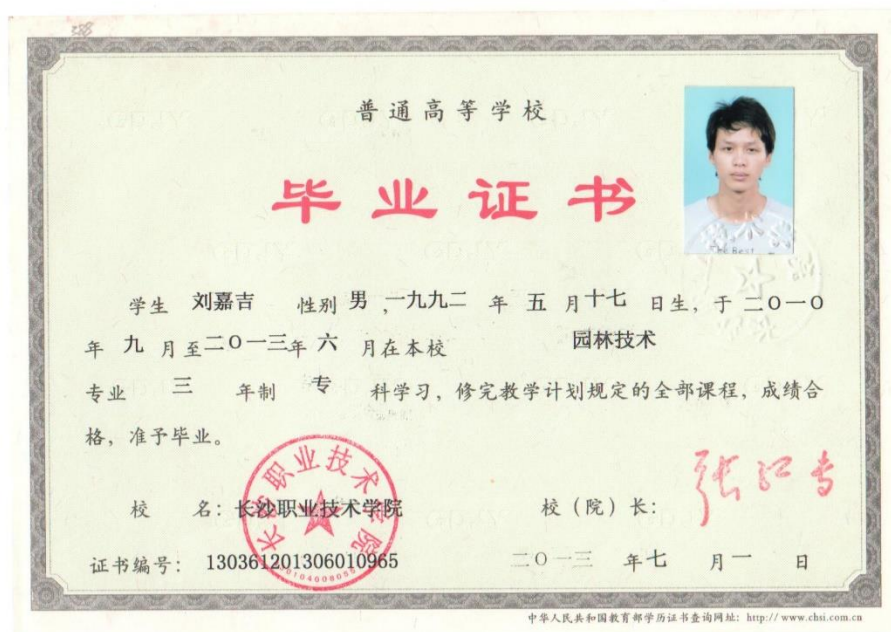 普通高等学校
毕业证书
The Best
学生 刘嘉吉 性别 男 ,一九九二 年 五 月 十七 日生，于 二〇一〇
年 九 月至 二〇一三 年 六 月在本校 园林技术
专业 三 年制 专 科学习，修完教学计划规定的全部课程，成绩合
格，准予毕业。
校 名：长沙职业技术学院 校（院）长：
长沙职业技术学院
证书编号： 130361201306010965 二〇一三 年 七 月 一 日
中华人民共和国教育部学历证书查询网址：http://www.chsi.com.cn